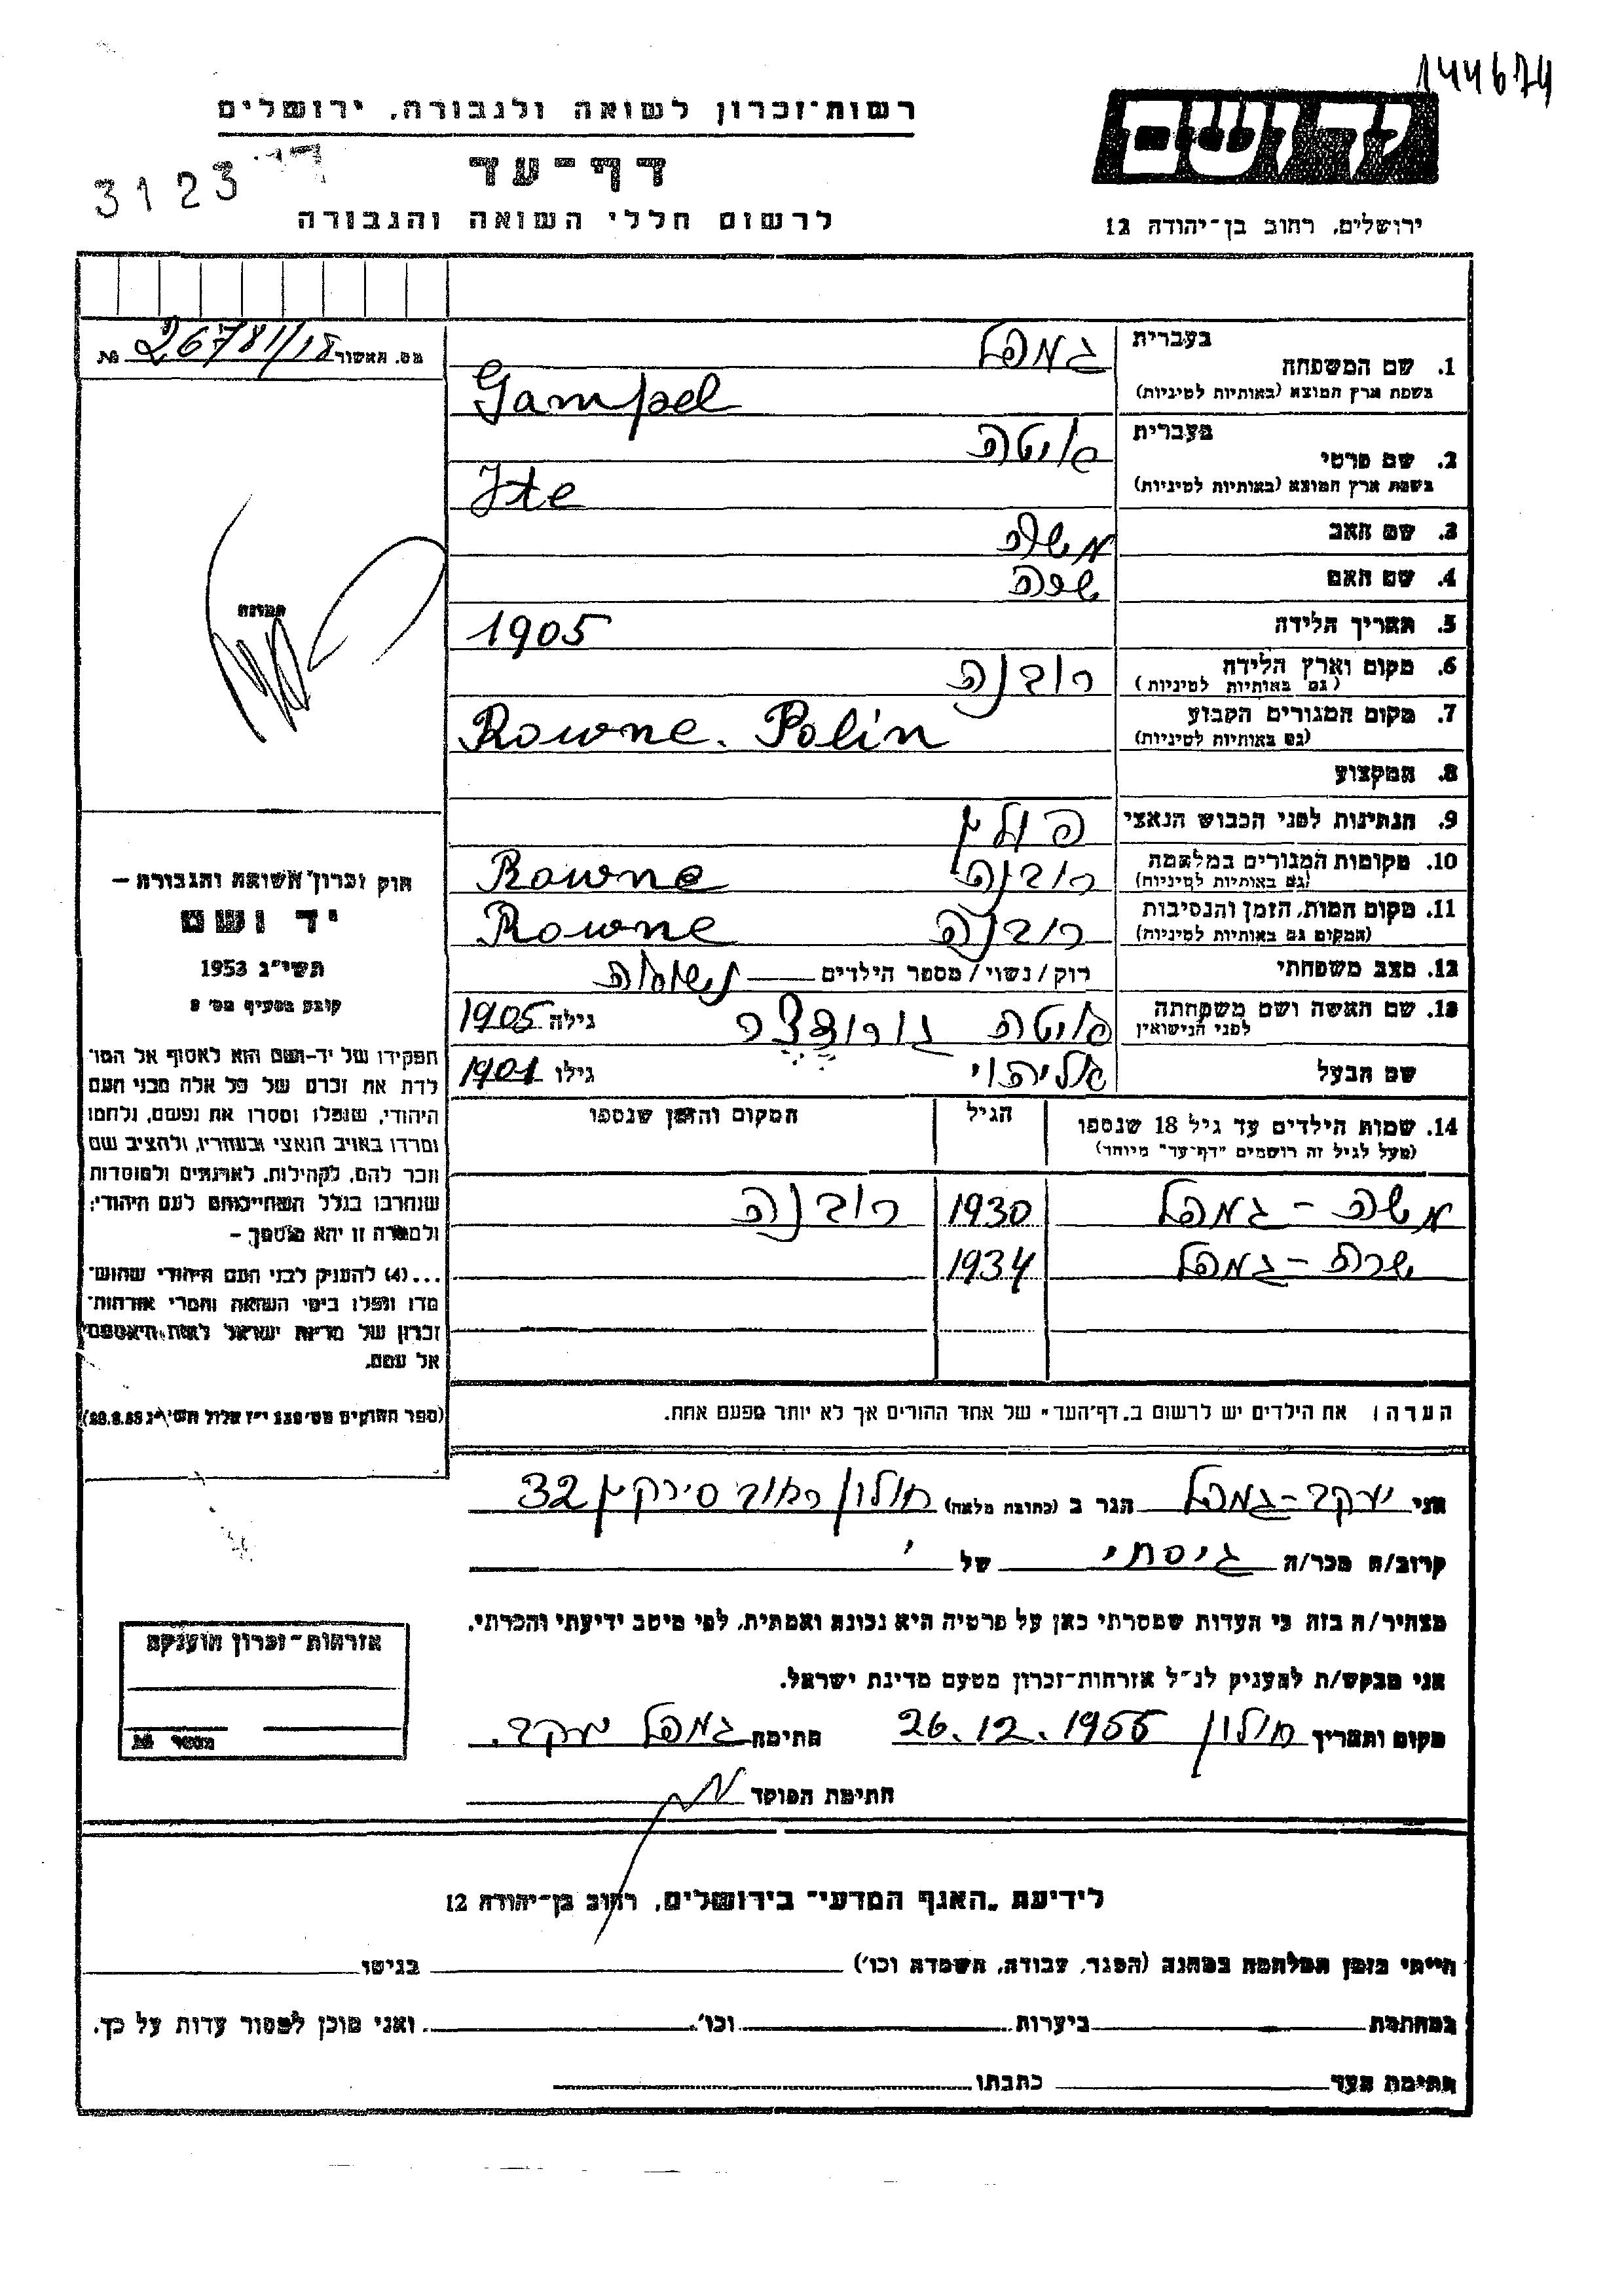 144674
רשות-זכרון לשואה ולגבורה, ירושלים
יד ושם
דף-עד
3123
לרשום חללי השואה והגבורה
ירושלים, רחוב בן-יהודה 12
מס. האשור 26781/18 №
1. שם המשפחה
בעברית גמפל
בשפת ארץ המוצא (באותיות לטיניות) Gampel
2. שם פרטי
בעברית איטה
בשפת ארץ המוצא (באותיות לטיניות) Ite
3. שם האב משה
4. שם האם
5. תאריך הלידה 1905
6. מקום וארץ הלידה רובנה
(גם באותיות לטיניות)
7. מקום המגורים הקבוע Rowne. Polin
(גם באותיות לטיניות)
8. המקצוע
9. הנתינות לפני הכבוש הנאצי פולין
10. מקומות המגורים במלחמה רובנה Rowne
(גם באותיות לטיניות)
11. מקום המות, הזמן והנסיבות רובנה Rowne
(המקום גם באותיות לטיניות)
12. מצב משפחתי רוק/נשוי/מספר הילדים נשואה
13. שם האשה ושם משפחתה איטה גילה 1905
לפני הנישואין
שם הבעל גילו 1901
14. שמות הילדים עד גיל 18 שנספו הגיל המקום והזמן שנספו
(מעל לגיל זה רושמים "דף-עד" מיוחד)
משה - גמפל 1930 רובנה
שרה - גמפל 1934
הערה: את הילדים יש לרשום ב"דף-העד" של אחד ההורים אך לא יותר מפעם אחת.
התמונה
חוק זכרון השואה והגבורה –
יד ושם
תשי"ג 1953
קובע בסעיף מס' 2
תפקידו של יד-ושם הוא לאסוף אל המו-
לדת את זכרם של כל אלה מבני העם
היהודי, שנפלו ומסרו את נפשם, נלחמו
ומרדו באויב הנאצי ובעוזריו, ולהציב שם
וזכר להם, לקהילות, לארגונים ולמוסדות
שנחרבו בגלל השתייכותם לעם היהודי;
ולמטרה זו יהא מוסמך –
...(4) להעניק לבני העם היהודי שהוש-
מדו ונפלו בימי השואה והמרי אזרחות-
זכרון של מדינת ישראל לאות היאספם
אל עמם.
אני יעקב - גמפל הגר ב (כתובת מלאה) חולון רחוב סירקין 32
קרוב/ה מכר/ה גיסתי של
מצהיר/ה בזה כי העדות שמסרתי כאן על פרטיה היא נכונה ואמתית, לפי מיטב ידיעתי והכרתי.
אני מבקש/ת להעניק לנ"ל אזרחות-זכרון מטעם מדינת ישראל.
מקום ותאריך חולון 26.12.1955 חתימה גמפל יעקב.
חתימת הפוקד
אזרחות-זכרון הוענקה
מספר №
לידיעת "האגף המדעי" בירושלים, רחוב בן-יהודה 12
הייתי בזמן המלחמה במחנה (הסגר, עבודה, השמדה וכו') בגיטו
במחתרת ביערות וכו'. ואני מוכן למסור עדות על כך.
חתימת העד כתבתו